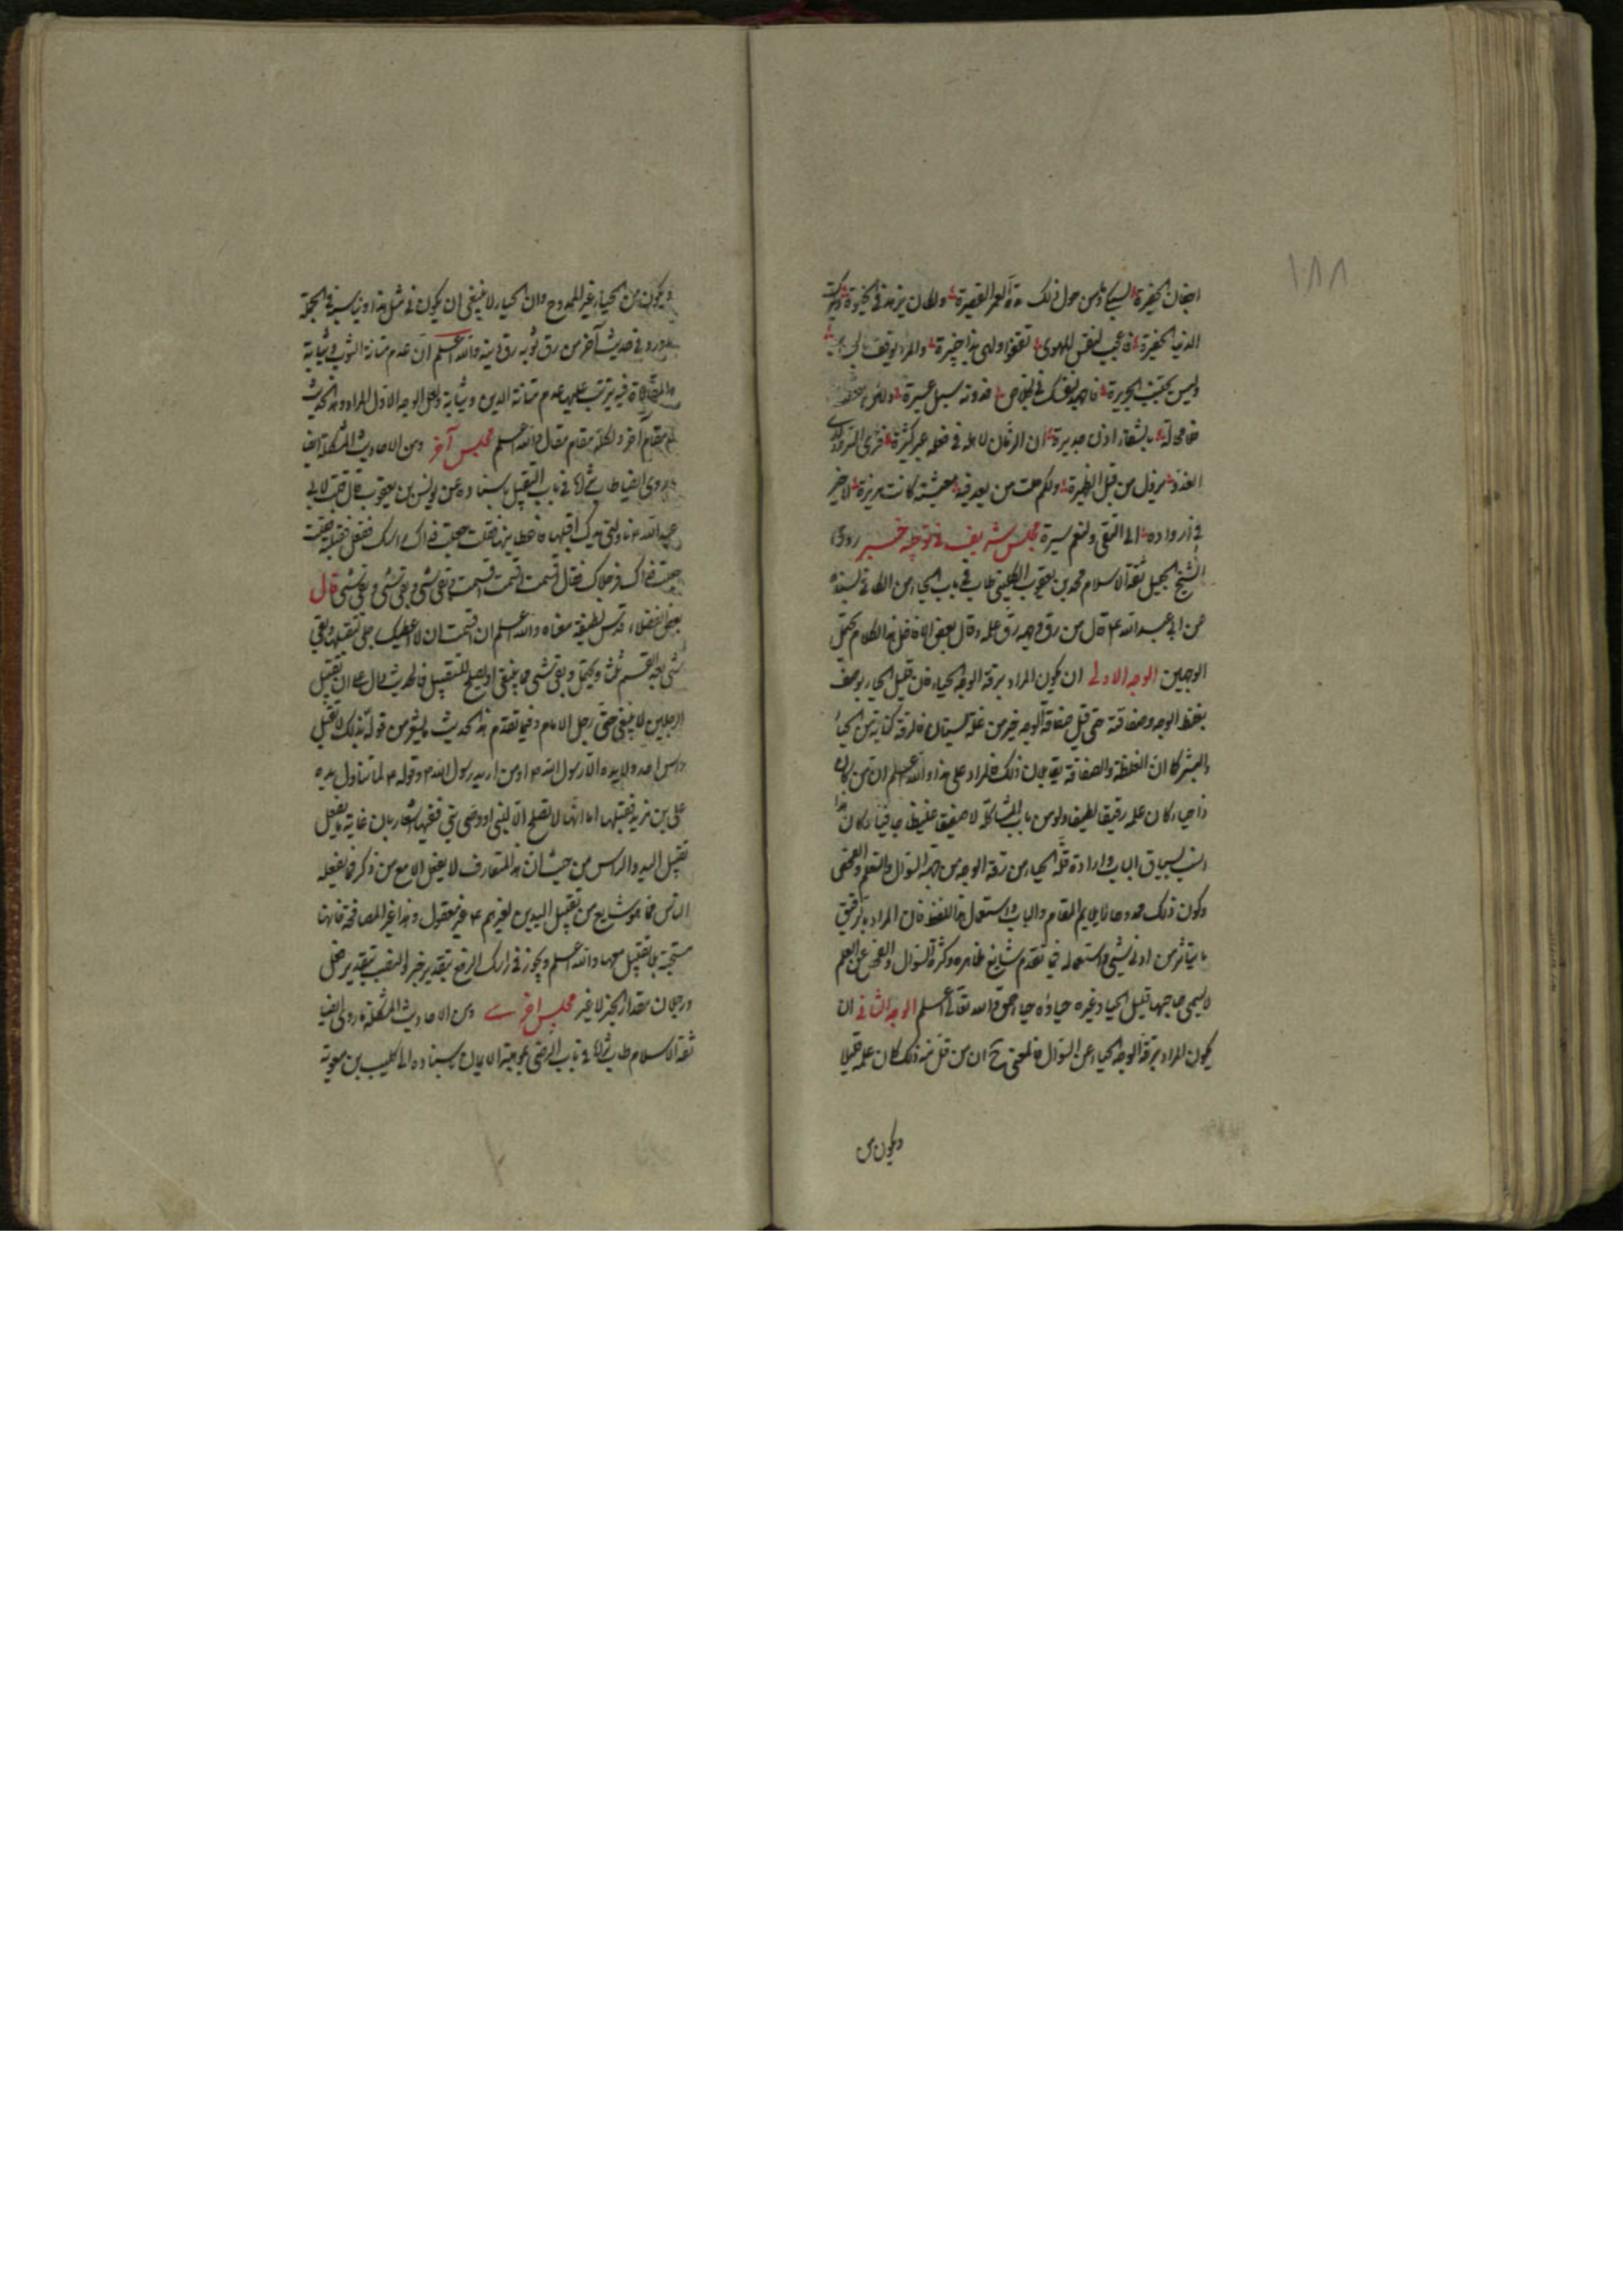 ١٨٨
اجفان الحفيرة السيكاو من حول ذلك مدة العمر القصيرة ولكان يزهد في الحيوة
الدنيا الحقيرة فاعجب لنفس للهوى تقفوا ولهى بذا خبيرة والمرء يوقف
وليس يجتنب الجريرة فاجهد لنفسك في الخلاص فدونه سبل عسيرة
بالشفاء اذن جديرة ان الزمان لاهله في فعله عبر كثيرة فترى
الغدو يزول من قبل الظهيرة ولكم مت من بعد فيه معيشة كانت مريرة لا خير
في ازواده الى التقى ولنعم سيرة مجلس شريف في توجيه خبر روى
الشيخ الجليل ثقة الاسلام محمد بن يعقوب الكليني طاب في باب الحياء من الكافي بسنده
عن ابي عبد الله ع قال من رق وجهه رق علمه وقال بعض الافاضل هذا الكلام يحتمل
الوجهين الوجه الاول ان يكون المراد برقة الوجه الحياء فان قليل الحياء يوصف
بغلظ الوجه وصفاقته حتى قيل صفاقة الوجه خير من غلة بستان فالرقة كناية عن الحياء
والبشر كما ان الغلظة والصفاقة يقابلان ذلك فالمراد على هذا والله اعلم ان من كان
ذا حياء كان علمه رقيقا لطيفا ولو من باب المشاكلة لا صفيقا غليظا جافيا وكان هذا
انسب بسياق الباب وارادة قلة الحياء من رقة الوجه من جهة السؤال والتعلم والفحص
وكون ذلك ممدوحا لا يلايم المقام والباب واستعمال هذا اللفظ فان المراد بالرقيق
ما يتاثر من ادنى شيء واستعماله فيما تقدم شايع ظاهر وكثرة السؤال والفحص عن العلم
لا يسمى صاحبها قليل الحياء وغيره حياؤه حياء حمق والله تعالى اعلم الوجه الثاني ان
يكون المراد برقة الوجه الحياء عن السؤال فالمعنى ح ان من قل منه ذلك كان علمه قليلا
ويكون من
ويكون من الحياء غير الممدوح وان الحياء لا ينبغي ان يكون في مثل هذا ويناسبه في الجملة
ما ورد في حديث آخر من رق ثوبه رق دينه والله اعلم ان عدم متانة الثوب وثيابة
فيه يترتب عليها عدم متانة الدين وثيابة ولعل الوجه الاول المراد وهذا الحديث
له مقام آخر ولكل مقام مقال والله اعلم مجلس آخر ومن الاحاديث المشكلة ايضا
ما روى ايضا طاب ثراه في باب التقبيل باسناده عن يونس بن يعقوب قال قلت لابي
عبد الله ع ناولني يدك اقبلها فاعطانيها فقلت جعلت فداك راسك ففعل فقبلته فقلت
جعلت فداك فرجلاك فقال اقسمت اقسمت اقسمت وبقي شئ وبقي شئ وبقي شئ قال
بعض الفضلاء قدس لطيفه معناه والله اعلم ان اقسمت ان لا اعطيك رجلي تقبلها وبقي
شئ بعد القسم ثلث ويحتمل وبقي شئ مما ينبغي او يصلح للتقبيل فالحديث دال على ان تقبيل
الرجلين لا ينبغي حتى رجل الامام وفيما تقدم هذا الحديث ما يشعر من قوله بذلك لا تقبل
راس احد ولا يده الا رسول الله ص او من اريد به رسول الله ص وقوله ع لما تناول يده
على بن مزيد فقبلها اما انها لا تصلح الا لنبي او وصي نبي ففيها اشعار بان غاية ما يفعل
تقبيل اليد والراس من حيث ان هذا المتعارف لا يفعل الا مع من ذكر فما يفعله
الناس مما هو شايع من تقبيل اليدين لغيرهم ع غير معقول وهذا غير المصافحة فانها
مستحبة بلا تقبيل معها والله اعلم ويجوز في راسك الرفع بتقدير خبر والنصب بتقدير فعل
ورجلان مقدار الخبر لا غير مجلس اخرى ومن الاحاديث المشكلة ما روى ايضا
ثقة الاسلام طاب ثراه في باب الرضى بموهبة الايمان باسناده الى كليب بن معوية